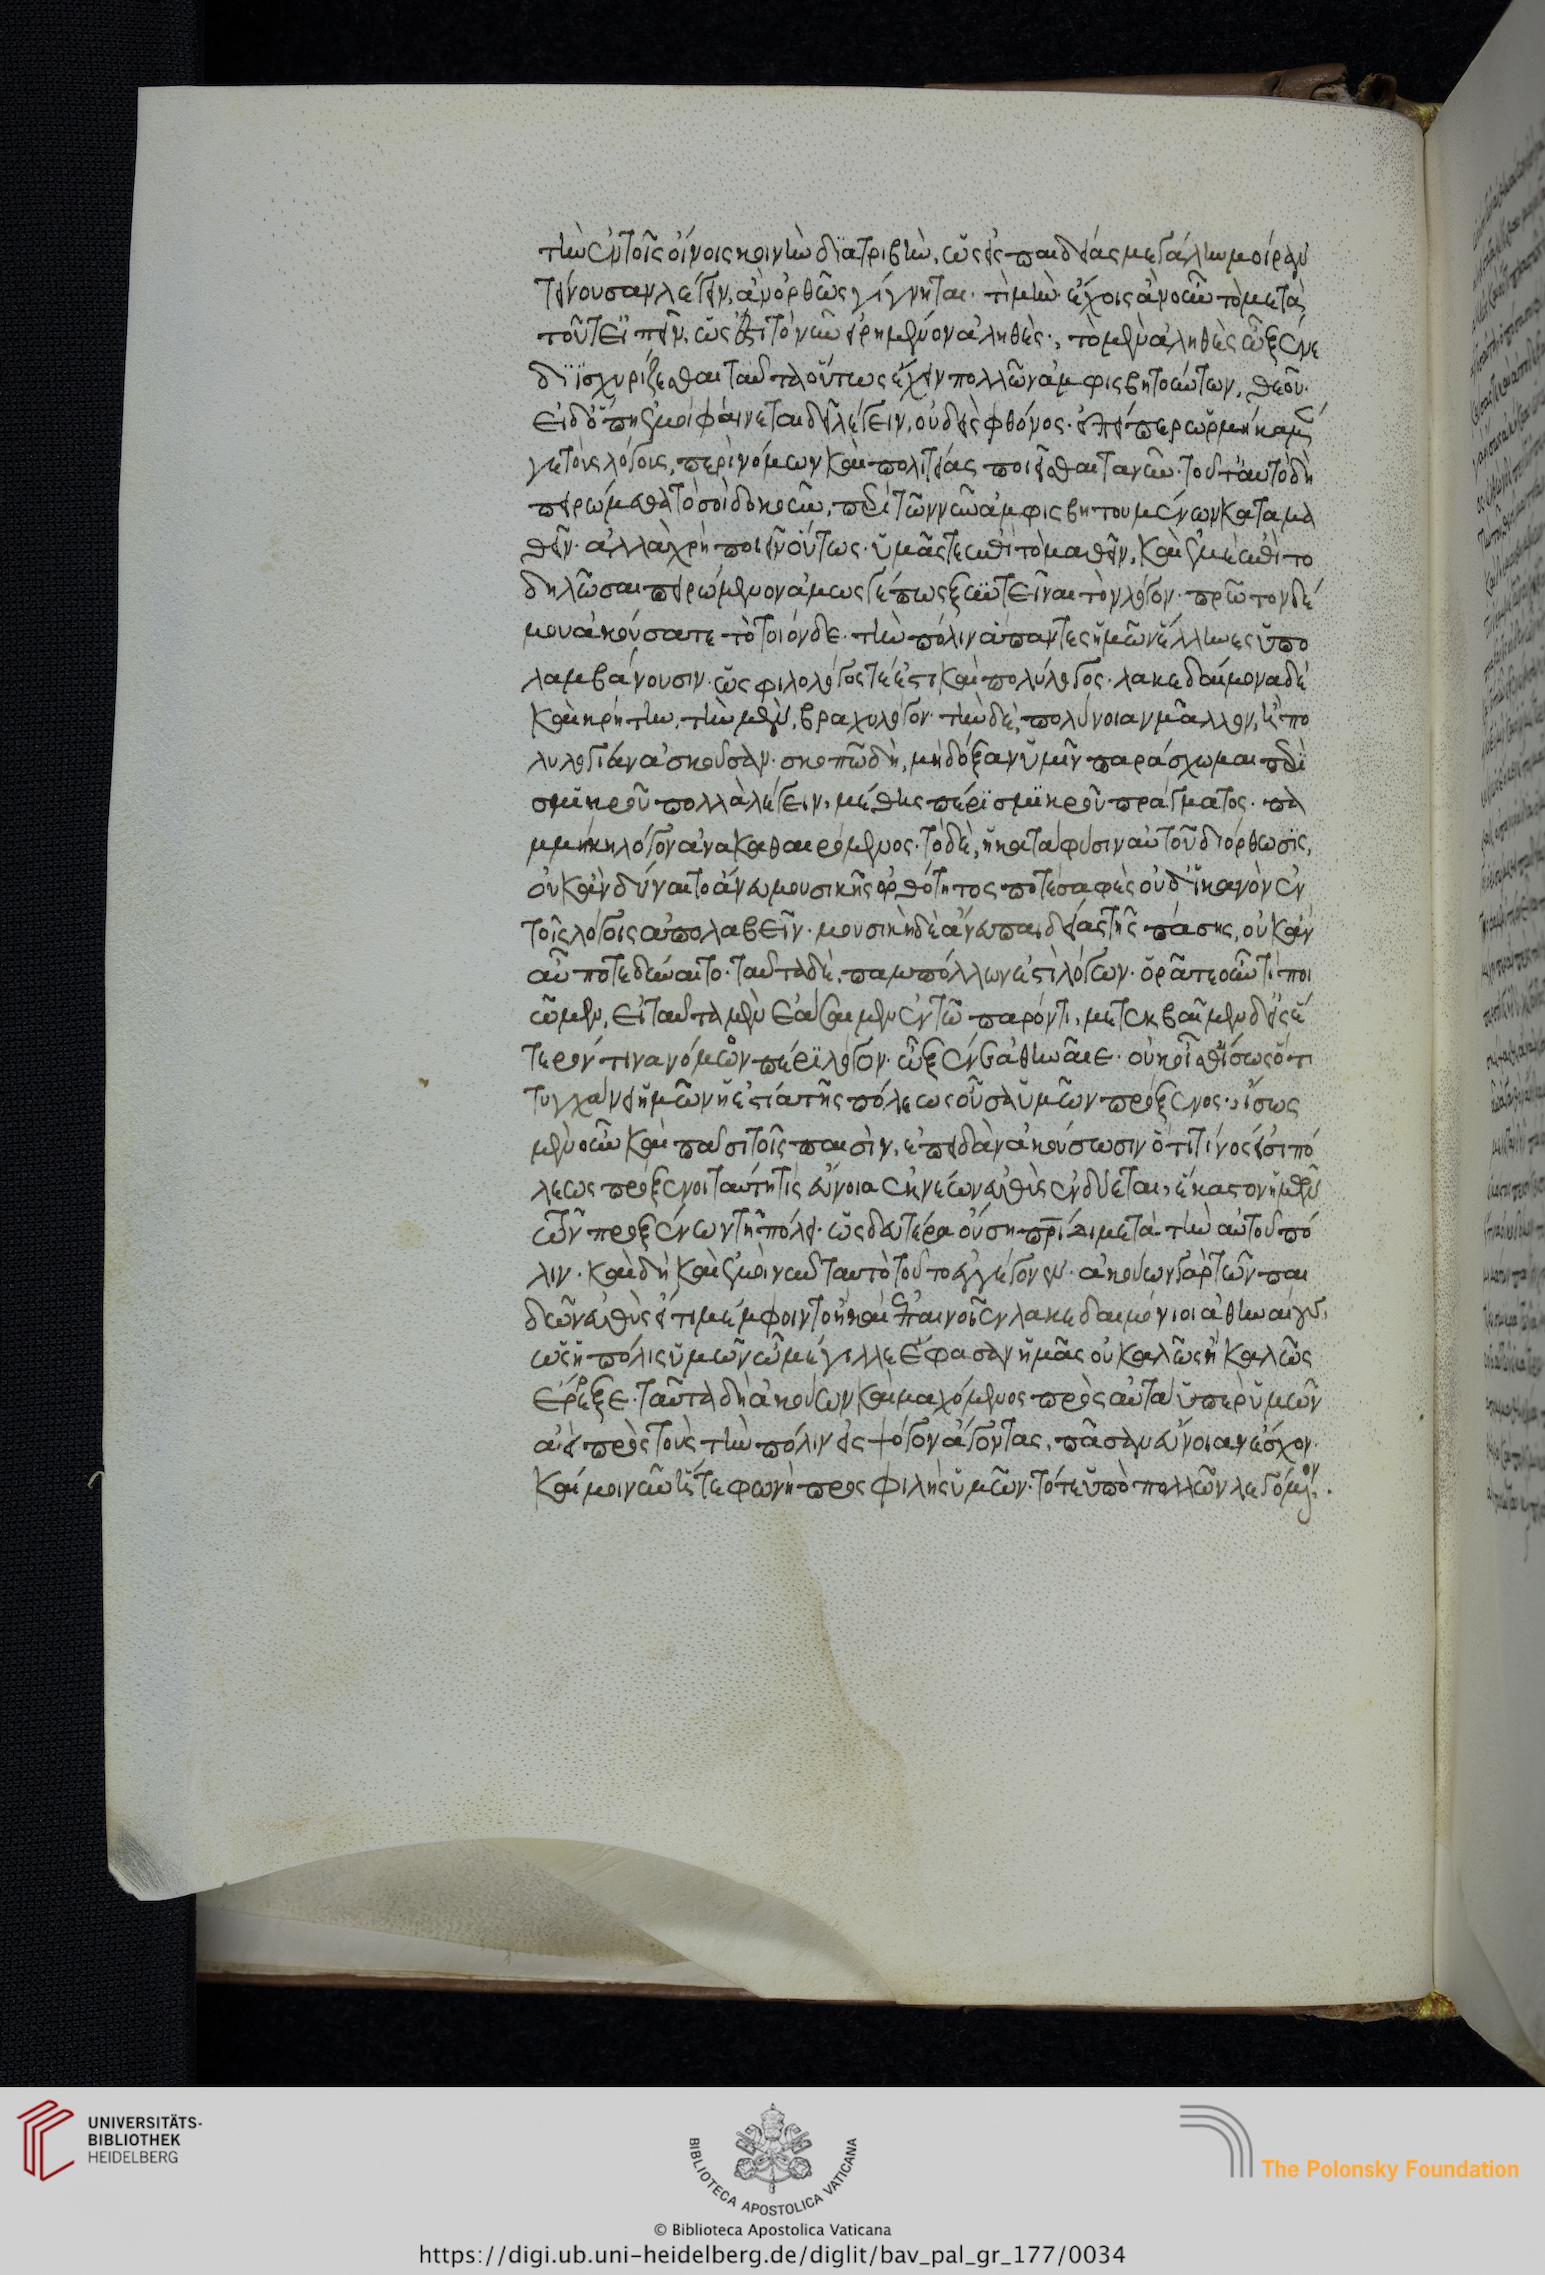 τὴν ἐν τοῖς οἴνοις κοινὴν διατριβὴν, ὡς εἰς παιδείας μεγάλην μοίραν
τείνουσαν λέγειν, ἀν ὀρθῶς γίγνηται· τὶ μὴν· ἔχοις ἀν οὖν τὸ μετὰ
τοῦτ εἰπεῖν, ὡς ἔστι τὸ νῦν εἰρημένον ἀληθὲς·, τὸ μὲν ἀληθὲς ὦ ξένε
διϊσχυρίζεσθαι ταῦτα οὕτως ἔχειν πολλῶν ἀμφισβητούντων, θεοῦ·
εἰ δ ὅπη ἐμοὶ φαίνεται δεῖ λέγειν, οὐδεὶς φθόνος· ἐπείπερ ὡρμήκαμέν
γε τοὺς λόγους, περὶ νόμων καὶ πολιτείας ποιεῖσθαι τανῦν· τοῦτ αυτὸ δὴ
πειρώμεθα τὸ σοὶ δοκοῦν, περὶ τῶν νῦν ἀμφισβητουμένων καταμα
θεῖν· αλλὰ χρὴ ποιεῖν οὕτως· ὑμᾶς τε ἐπὶ τὸ μαθεῖν, καὶ ἐμὲ ἐπὶ το
δηλῶσαι πειρώμενον ἁμως γέ πως ξυντεῖναι τὸν λόγον· πρῶτον δέ
μου ἀκούσατε τὸ τοιόνδε· τὴν πόλιν ἁπαντες ἡμῶν ἕλληνες ὑπο
λαμβάνουσιν· ὡς φιλολόγος τέ ἐστι καὶ πολύλογος· λακεδαίμονα δέ
καὶ κρήτην, τὴν μὲν, βραχυλόγον· τὴν δὲ, πολύνοιαν μᾶλλον, ἢ πο
λυλογίαν ἀσκοῦσαν· σκοπῶ δὴ, μὴ δόξαν ὑμῖν παράσχωμαι περὶ
σμικροῦ πολλὰ λέγειν, μέθης πέρϊ σμικροῦ πράγματος· πα
μμήκη λόγον ἀνακαθαιρόμενος· τὸ δὲ, ἡ κατα φύσιν αὐτοῦ διόρθωσις,
οὐκ ἀν δύναιτο άνευ μουσικῆς ὀρθότητος ποτε σαφὲς οὐδ ἱκανὸν ἐν
τοῖς λόγοις ἀπολαβεῖν· μουσικὴ δὲ ἄνευ παιδείας τῆς πάσης, οὐκ ἀν
αὖ ποτε δύναιτο· ταῦτα δὲ, παμπόλλων ἐστὶ λόγων· ὁρᾶτε οὖν τί ποι
ῶμεν, εἰ ταῦτα μὲν ἐάσαιμεν ἐν τῶ παρόντι, μετεκβαῖμεν δ εἰς ἕ
τερόν τινα νόμων πέρϊ λόγον· ὦ ξένε ἀθηναῖε· οὐκ οἶσθ ἴσως ὅτι
τυγχάνει ἡμῶν ἡ ἑστία τῆς πόλεως οὖσα ὑμῶν πρόξενος· ἴσως
μὲν οὖν καὶ πᾶσι τοῖς παισὶν, ἐπειδὰν ἀκούσωσιν ὅτι τινός εἰσι πό
λεως πρόξενοι ταύτη τὶς εὔνοια ἐκ νέων εὐθὺς ἐνδύεται, ἕκαστον ἡμῶν
τῶν προξένων τῆ πόλει· ὡς δευτέρα ούση πατρίδι μετὰ τὴν αὑτοῦ πό
λιν· καὶ δὴ καὶ ἐμοὶ νῦν ταυτὸ τοῦτο ἐγγέγονεν· ἀκούων γὰρ τῶν παι
δων εὐθὺς εἴ τι μέμφοιντο ἢ καὶ ἐπαινοῖεν λακεδαιμόνιοι ἀθηναίους,
ὡς ἡ πόλις ὑμῶν ὦ μέγιλλε ἔφασαν ἡμᾶς οὐ καλῶς ἢ καλῶς
ἔρρεξε· ταῦτα δὴ ἀκούων καὶ μαχόμενος πρὸς αὐτὰ ὑπὲρ ὑμῶν
αἰεὶ πρὸς τοὺς τὴν πόλιν εἰς ψόγον ἄγοντας, πᾶσαν εὔνοιαν ἔσχον·
καί μοι νῦν ἥ τε φωνὴ προσφιλὴς ὑμῶν· τό τε ὑπὸ πολλῶν λεγόμενον·
UNIVERSITÄTS-
BIBLIOTHEK
HEIDELBERG
BIBLIOTECA APOSTOLICA VATICANA
The Polonsky Foundation
© Biblioteca Apostolica Vaticana
https://digi.ub.uni-heidelberg.de/diglit/bav_pal_gr_177/0034